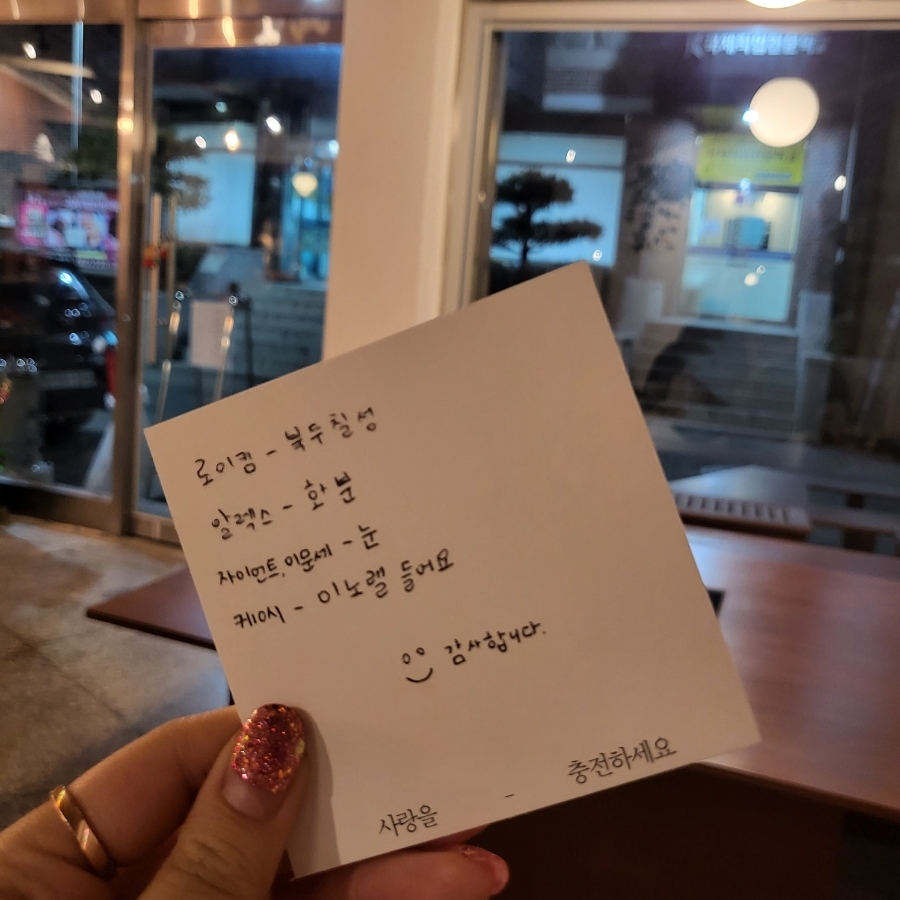 로이킴 - 북두칠성
알렉스 - 화분
자이언트, 이문세 - 눈
케이시 - 이노랠 들어요
감사합니다.
사랑을 - 충전하세요